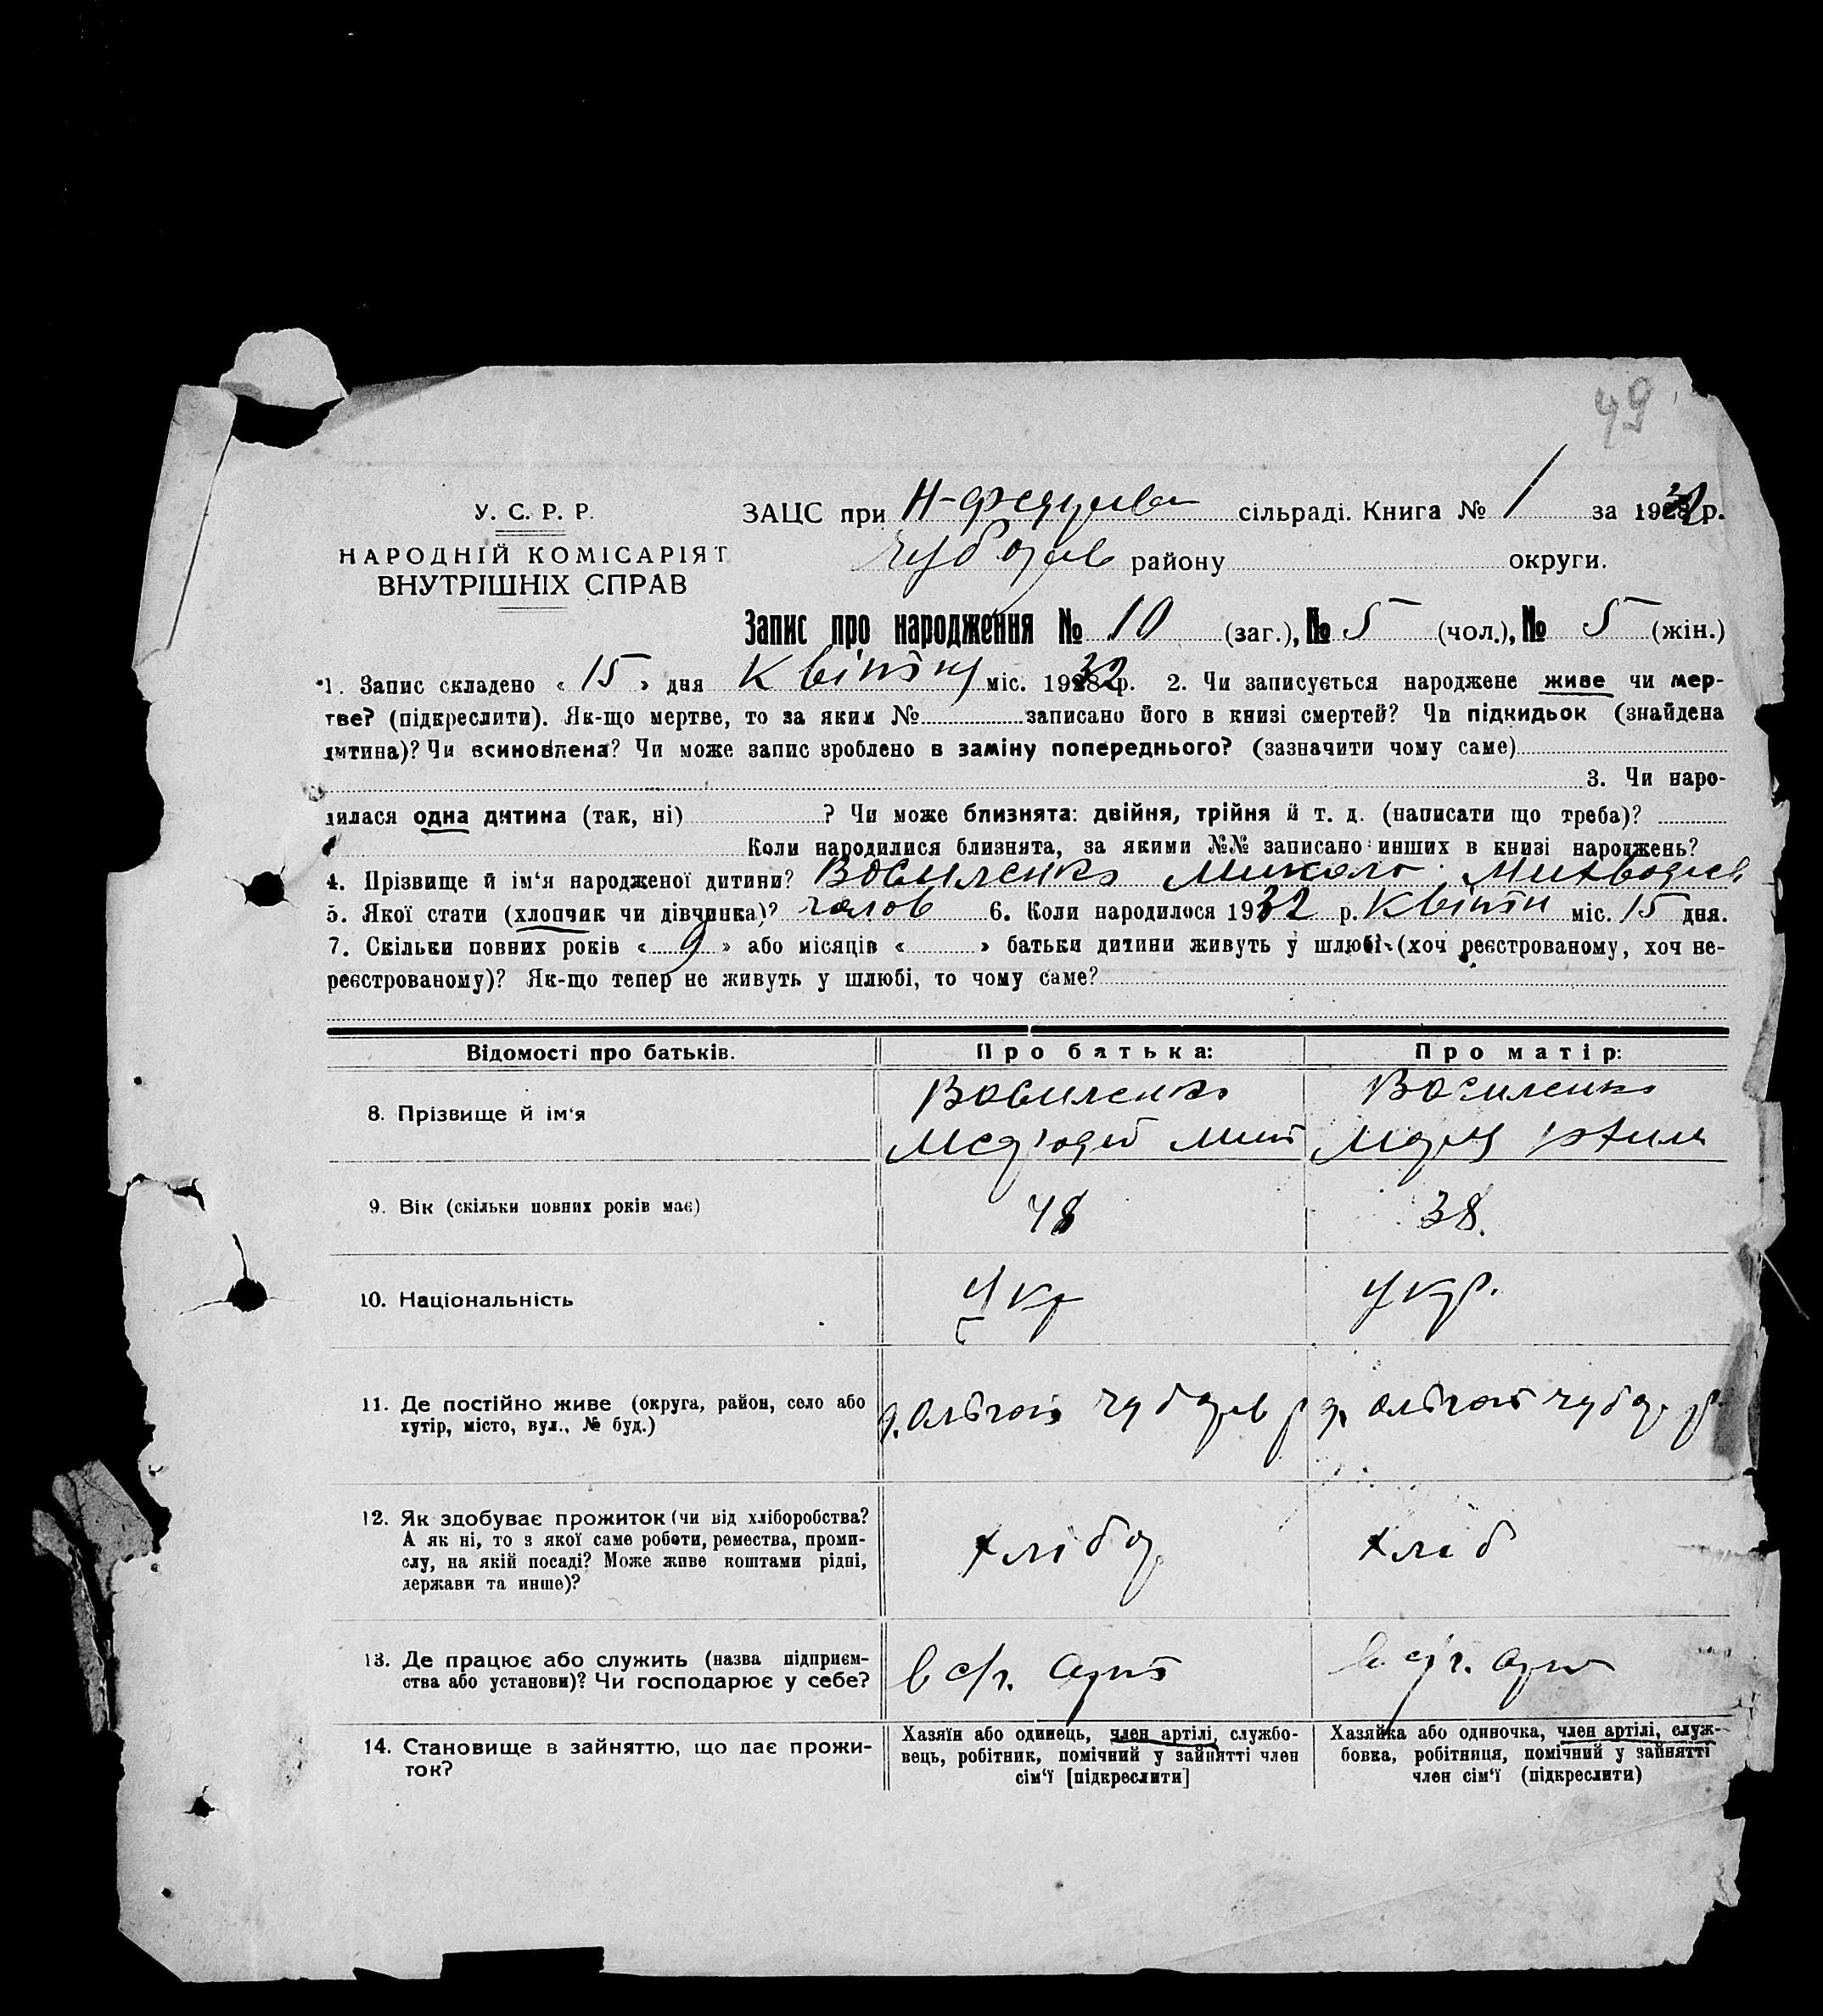 49
У. С. Р. Р.
НАРОДНІЙ КОМІСАРІЯТ
ВНУТРІШНІХ СПРАВ
ЗАЦС при сільраді. Книга № 1 за 1932 р.
району округи.
Запис про народження № 10 (заг.), № 5 (чол.), № 5 (жін.)
1. Запис складено « 15 » дня Квітня міс. 1932 р. 2. Чи записується народжене живе чи мер-
тве? (підкреслити). Як-що мертве, то за яким № записано його в книзі смертей? Чи підкидьок (знайдена
дитина)? Чи всиновлена? Чи може запис зроблено в заміну попереднього? (зазначити чому саме)
3. Чи наро-
дилася одна дитина (так, ні) ? Чи може близнята: двійня, трійня й т. д. (написати що треба)?
Коли народилися близнята, за якими №№ записано инших в книзі народжень?
4. Прізвище й ім‘я народженої дитини? Василенко Микола
5. Якої стати (хлопчик чи дівчинка)? чолов 6. Коли народилося 1932 р. Квітн міс. 15 дня.
7. Скільки повних років « 9 » або місяців « » батьки дитини живуть у шлюбі (хоч реєстрованому, хоч не-
реєстрованому)? Як-що тепер не живуть у шлюбі, то чому саме?
Відомості про батьків. Про батька: Про матір:
8. Прізвище й ім‘я Василенко Василенко
9. Вік (скільки повних років має) 48 38.
10. Національність Укр укр.
11. Де постійно живе (округа, район, село або
хутір, місто, вул., № буд.)
12. Як здобуває прожиток (чи від хліборобства?
А як ні, то з якої саме роботи, ремества, проми-
слу, на якій посаді? Може живе коштами рідні,
держави та инше)?
хлібо хліб
13. Де працює або служить (назва підприєм-
ства або установи)? Чи господарює у себе?
в с/г. арт в с/г. арт
14. Становище в зайняттю, що дає прожи-
ток?
Хазяїн або одинець, член артілі, службо-
вець, робітник, помічний у зайнятті член
сім‘ї [підкреслити]
Хазяйка або одиночка, член артілі, служ-
бовка, робітниця, помічний у зайнятті
член сім‘ї (підкреслити)